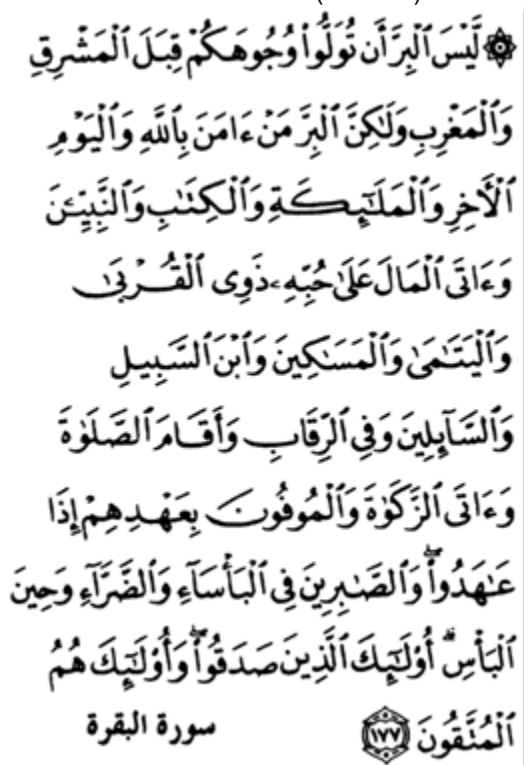 ۞ لَّيْسَ ٱلْبِرَّ أَن تُوَلُّوا۟ وُجُوهَكُمْ قِبَلَ ٱلْمَشْرِقِ
وَٱلْمَغْرِبِ وَلَـٰكِنَّ ٱلْبِرَّ مَنْ ءَامَنَ بِٱللَّهِ وَٱلْيَوْمِ
ٱلْـَٔاخِرِ وَٱلْمَلَـٰٓئِكَةِ وَٱلْكِتَـٰبِ وَٱلنَّبِيِّـۧنَ
وَءَاتَى ٱلْمَالَ عَلَىٰ حُبِّهِۦ ذَوِى ٱلْقُرْبَىٰ
وَٱلْيَتَـٰمَىٰ وَٱلْمَسَـٰكِينَ وَٱبْنَ ٱلسَّبِيلِ
وَٱلسَّآئِلِينَ وَفِى ٱلرِّقَابِ وَأَقَامَ ٱلصَّلَوٰةَ
وَءَاتَى ٱلزَّكَوٰةَ وَٱلْمُوفُونَ بِعَهْدِهِمْ إِذَا
عَـٰهَدُوا۟ ۖ وَٱلصَّـٰبِرِينَ فِى ٱلْبَأْسَآءِ وَٱلضَّرَّآءِ وَحِينَ
ٱلْبَأْسِ ۗ أُو۟لَـٰٓئِكَ ٱلَّذِينَ صَدَقُوا۟ ۖ وَأُو۟لَـٰٓئِكَ هُمُ
ٱلْمُتَّقُونَ ١٧٧ سورة البقرة